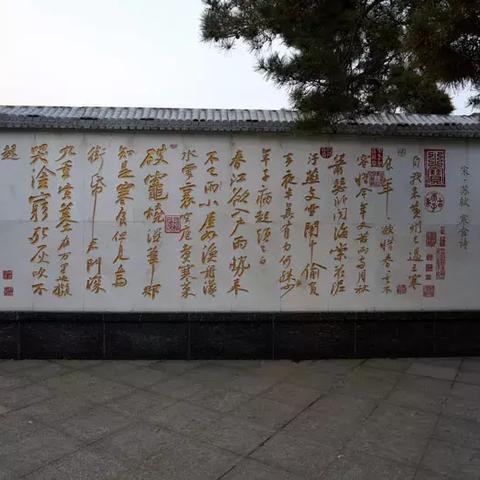 宋·苏轼 寒食诗
自我来黄州已过三寒
食年年欲惜春春去不
容惜今年又苦雨两月秋
萧瑟卧闻海棠花泥
污燕支雪闇中偷负
去夜半真有力何殊少
年子病起须已白
春江欲入户雨势来
不已雨小屋如渔舟濛濛
水云里空庖煮寒菜
破灶烧湿苇那
知是寒食但见乌
衔纸君门深
九重坟墓在万里也拟
哭塗穷死灰吹不
起